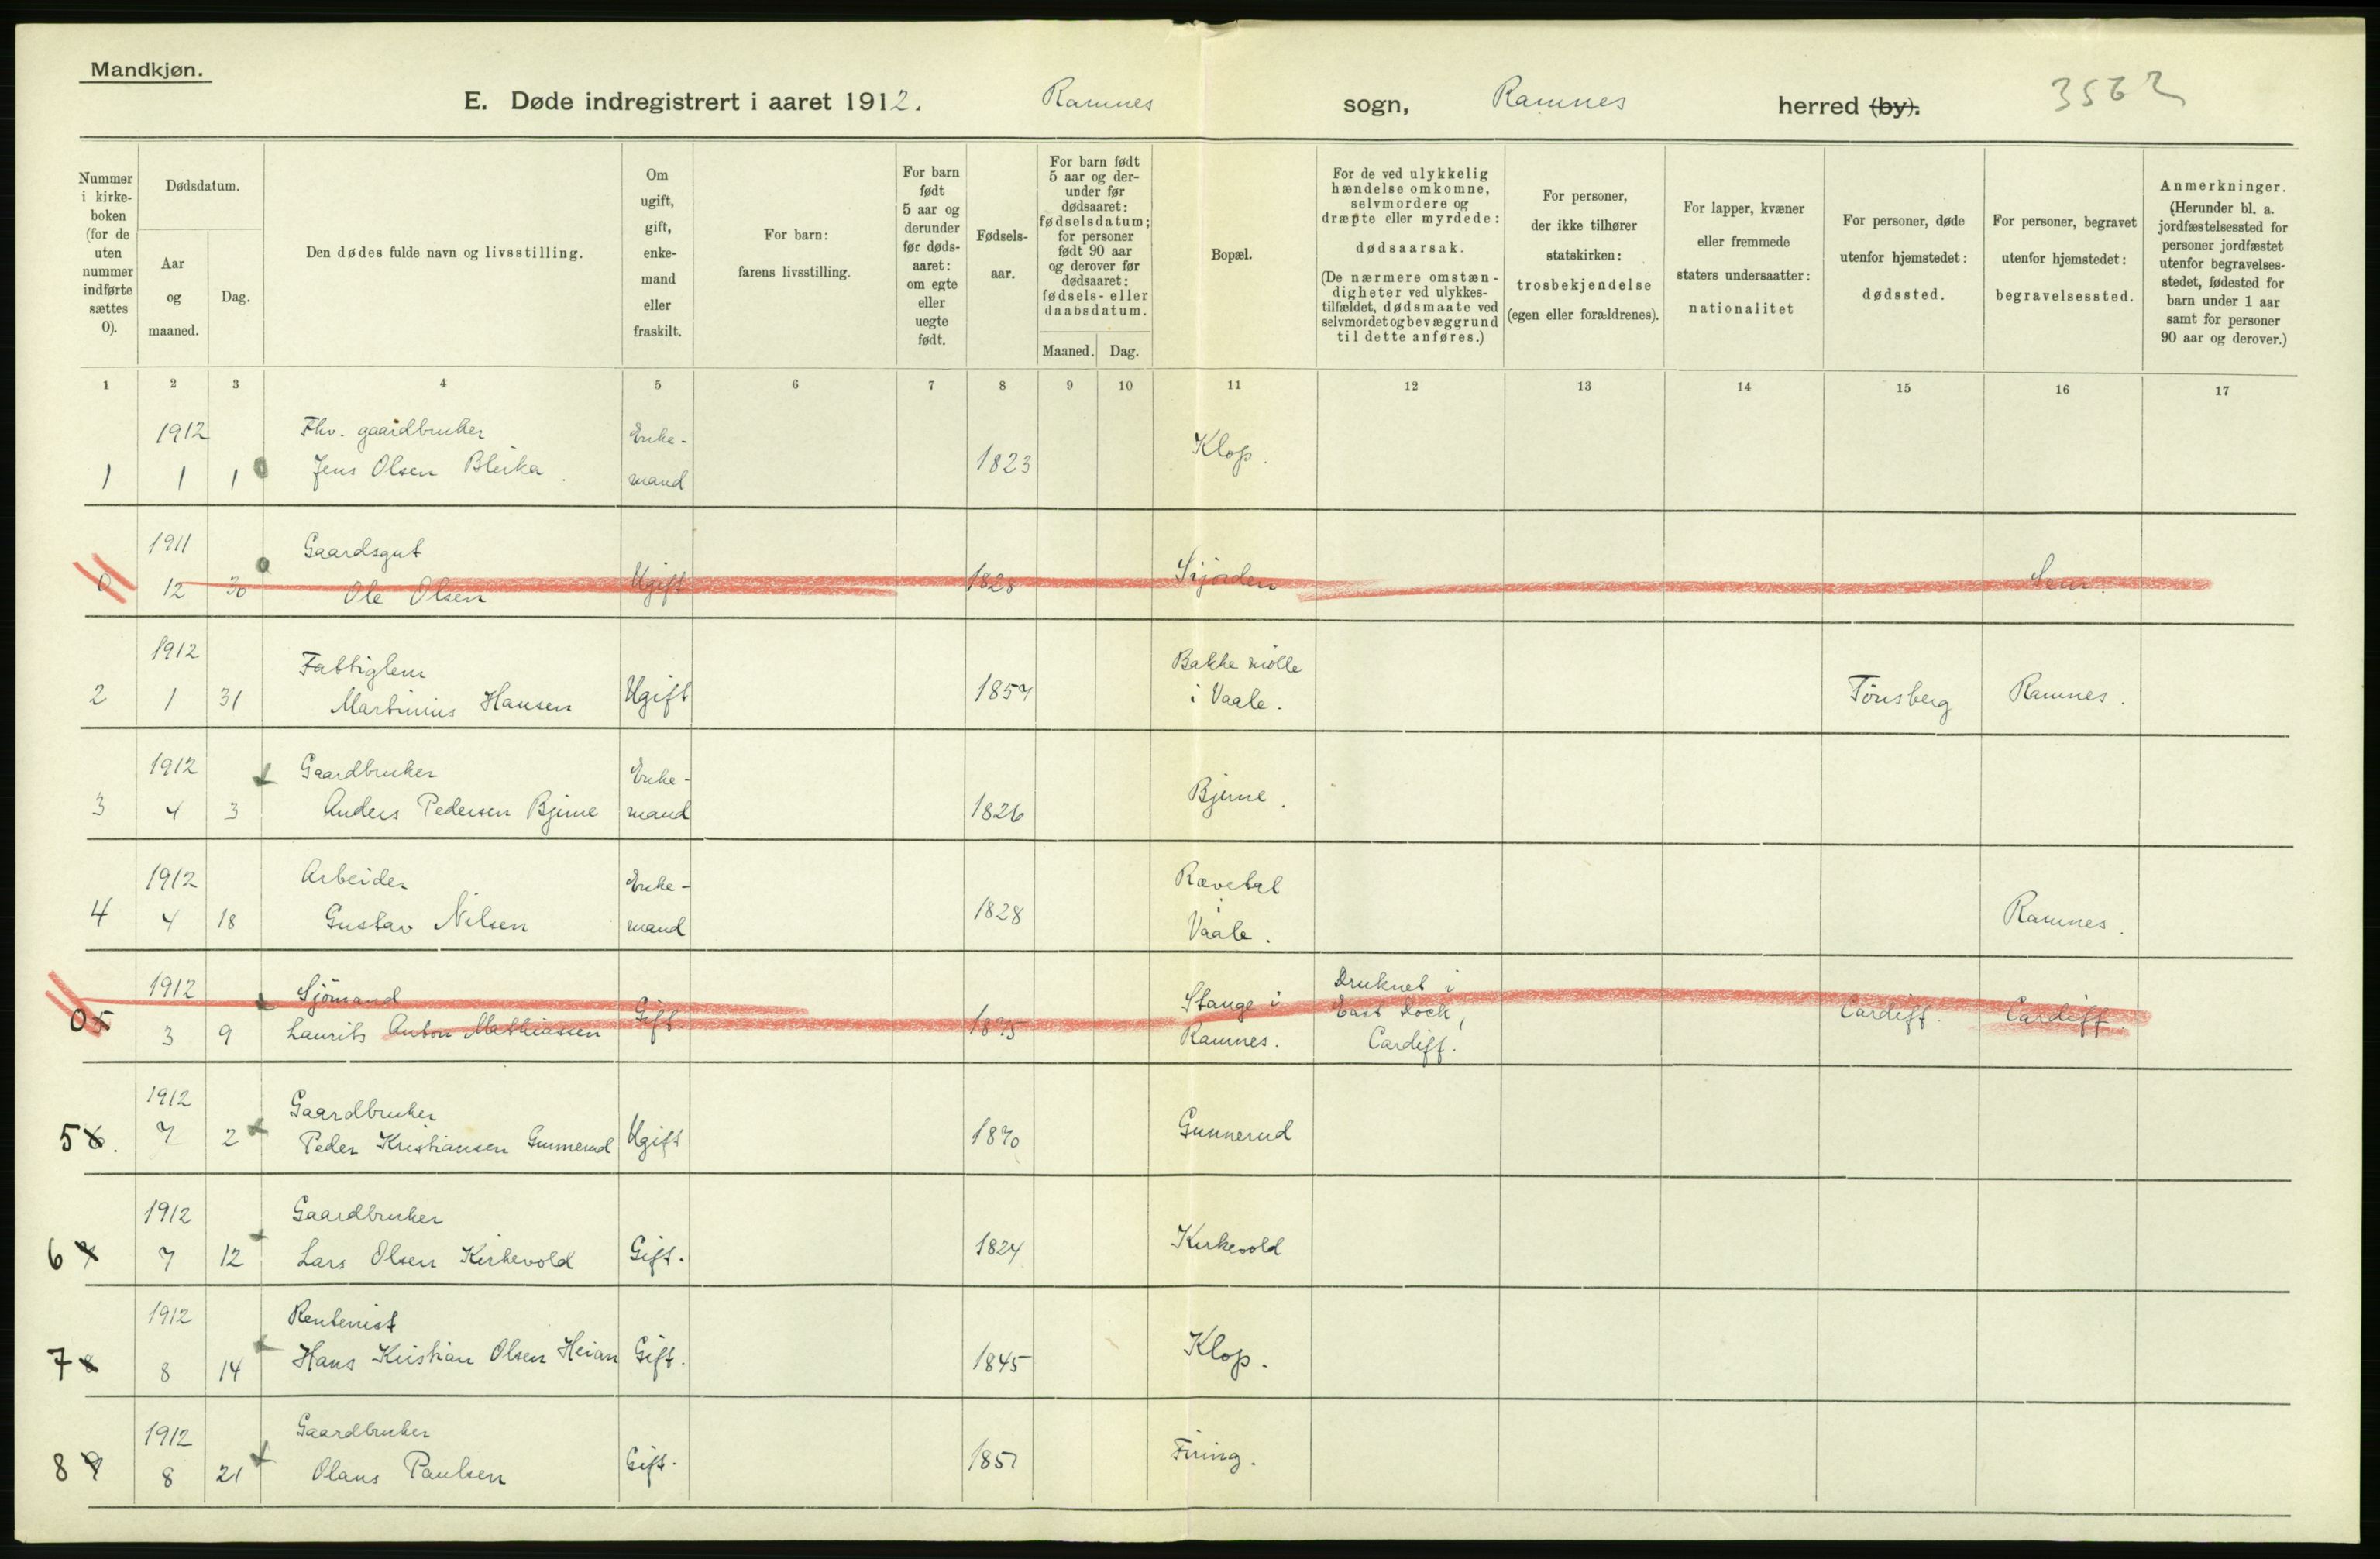 Mandkjøn.
E. Døde indregistrert i aaret 1912. Ramnes sogn, Ramnes herred (by). 3562
Nummer i kirke-boken (for de uten nummer indførte sættes 0).
Dødsdatum.
Aar og maaned.
Dag.
Den dødes fulde navn og livsstilling.
Om ugift, gift, enke-mand eller fraskilt.
For barn: farens livsstilling.
For barn født 5 aar og derunder før døds-aaret: om egte eller uegte født.
Fødsels-aar.
For barn født 5 aar og der-under før dødsaaret: fødselsdatum; for personer født 90 aar og derover før dødsaaret: fødsels- eller daabsdatum.
Maaned. Dag.
Bopæl.
For de ved ulykkelig hændelse omkomne, selvmordere og dræpte eller myrdede: dødsaarsak. (De nærmere omstæn-digheter ved ulykkes-tilfældet, dødsmaate ved selvmordet og bevæggrund til dette anføres.)
For personer, der ikke tilhører statskirken: trosbekjendelse (egen eller forældrenes).
For lapper, kvæner eller fremmede staters undersaatter: nationalitet
For personer, døde utenfor hjemstedet: dødssted.
For personer, begravet utenfor hjemstedet: begravelsessted.
Anmerkninger. (Herunder bl. a. jordfæstelsessted for personer jordfæstet utenfor begravelses-stedet, fødested for barn under 1 aar samt for personer 90 aar og derover.)
1 2 3 4 5 6 7 8 9 10 11 12 13 14 15 16 17
1912 Fhv. gaardbruker Enke- Klop.
1 1 1 Jens Olsen Bleika. mand 1823
1911 Gaardsgut
0 12 30 Ole Olsen Ugift 1828 Sem.
1912 Fattiglem Bakke mølle
2 1 31 Martinius Hansen Ugift 1857 i Vaale. Tønsberg Ramnes.
1912 Gaardbruker Enke- Bjerne.
3 4 3 Anders Pedersen Bjerne mand 1826
1912 Arbeider Enke- Rævetal
4 4 18 Gustav Nilsen mand 1828 i Vaale. Ramnes.
1912 Sjømand Stange i Druknet i
05 3 9 Laurits Anton Mathiassen Gift. 1875 Ramnes. East Dock, Cardiff. Cardiff. Cardiff.
1912 Gaardbruker
5 6. 7 2 Peder Kristiansen Gunnerud Ugift 1870 Gunnerud
1912 Gaardbruker
6 7 7 12 Lars Olsen Kirkevold Gift. 1824 Kirkevold
1912 Rentenist
7 8 8 14 Hans Kristian Olsen Heian Gift. 1845 Klop.
1912 Gaardbruker
8 9 8 21 Olaus Paulsen Gift. 1851 Firing.